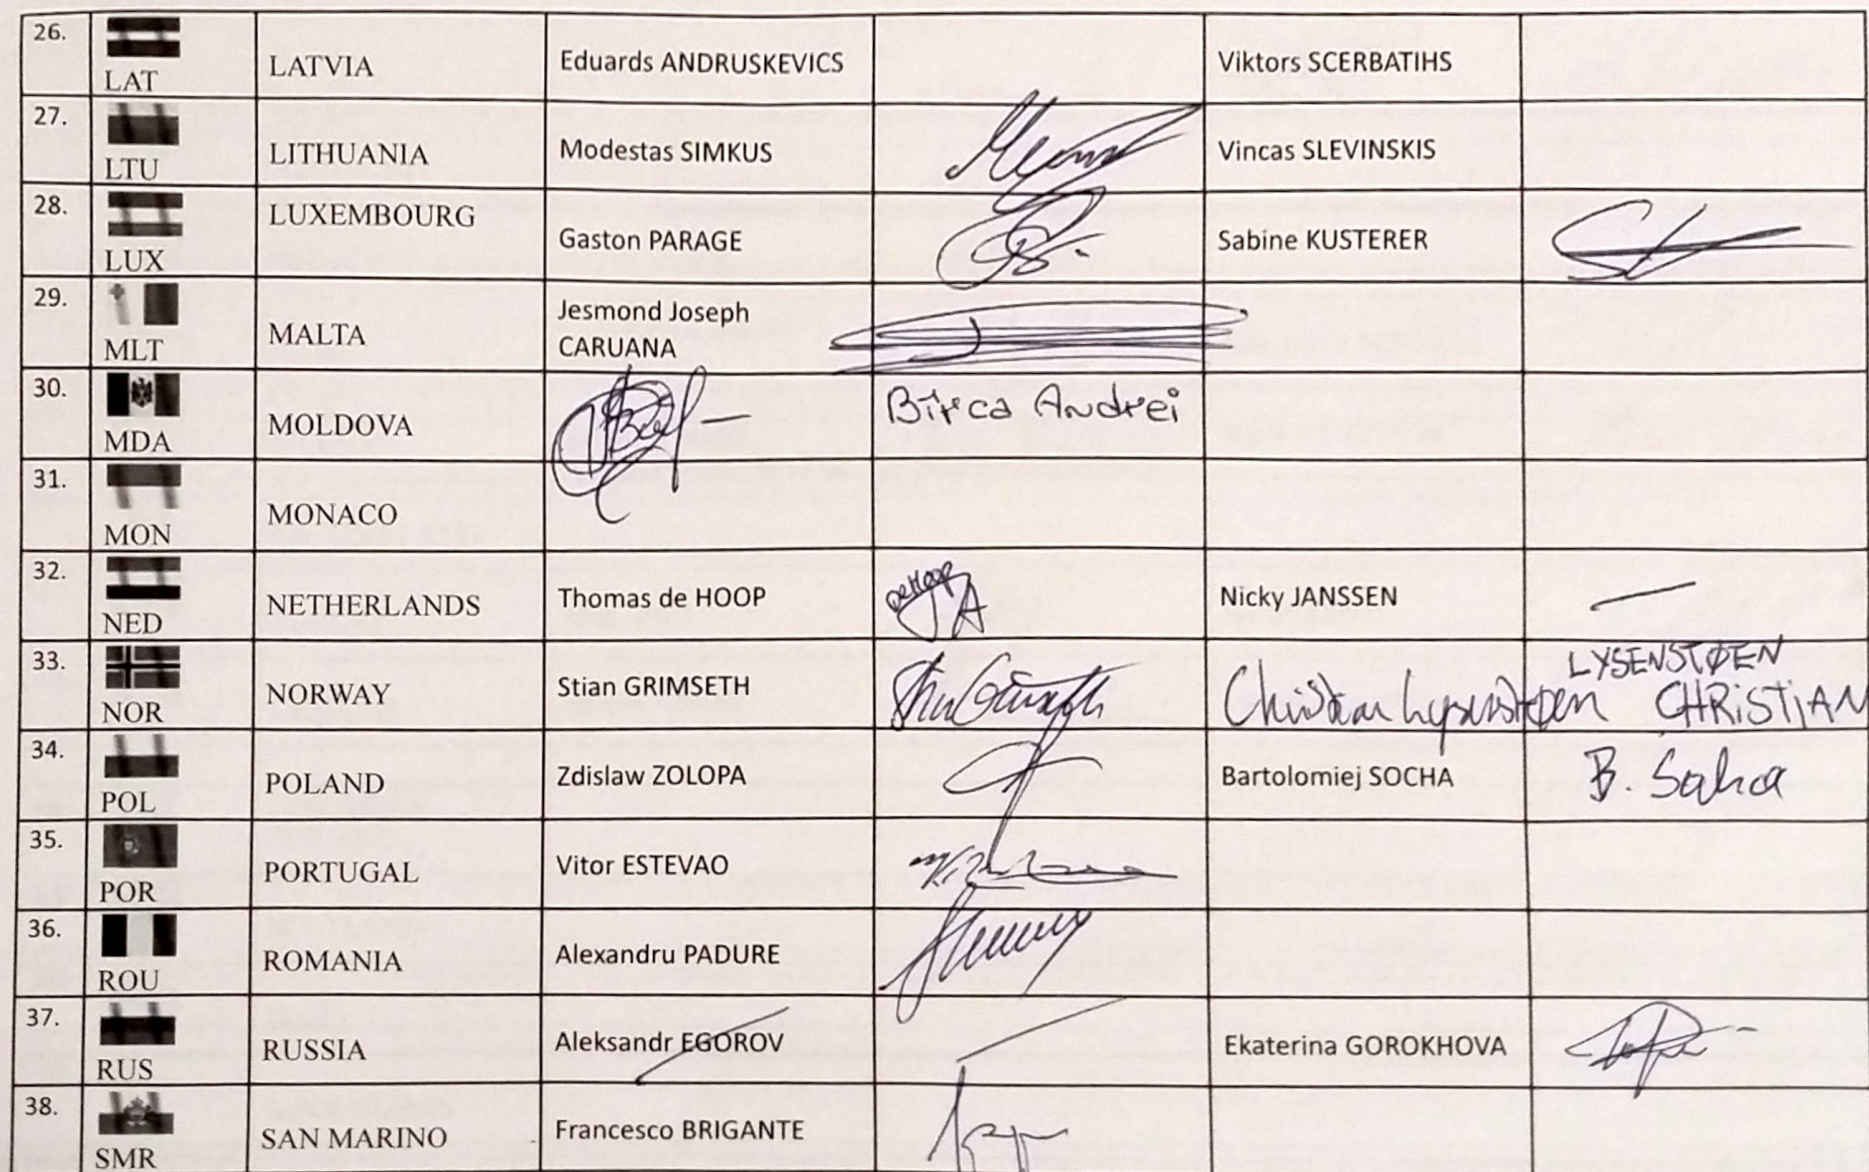 26.
LAT
LATVIA
Eduards ANDRUSKEVICS
Viktors SCERBATIHS
27.
LTU
LITHUANIA
Modestas SIMKUS
Vincas SLEVINSKIS
28.
LUX
LUXEMBOURG
Gaston PARAGE
Sabine KUSTERER
29.
MLT
MALTA
Jesmond Joseph
CARUANA
30.
MDA
MOLDOVA
Bîrca Andrei
31.
MON
MONACO
32.
NED
NETHERLANDS
Thomas de HOOP
de Hoop
Nicky JANSSEN
33.
NOR
NORWAY
Stian GRIMSETH
Christian Lysenstøen
LYSENSTØEN
CHRiSTiAN
34.
POL
POLAND
Zdislaw ZOLOPA
Bartolomiej SOCHA
B. Socha
35.
POR
PORTUGAL
Vitor ESTEVAO
36.
ROU
ROMANIA
Alexandru PADURE
37.
RUS
RUSSIA
Aleksandr EGOROV
Ekaterina GOROKHOVA
38.
SMR
SAN MARINO
Francesco BRIGANTE